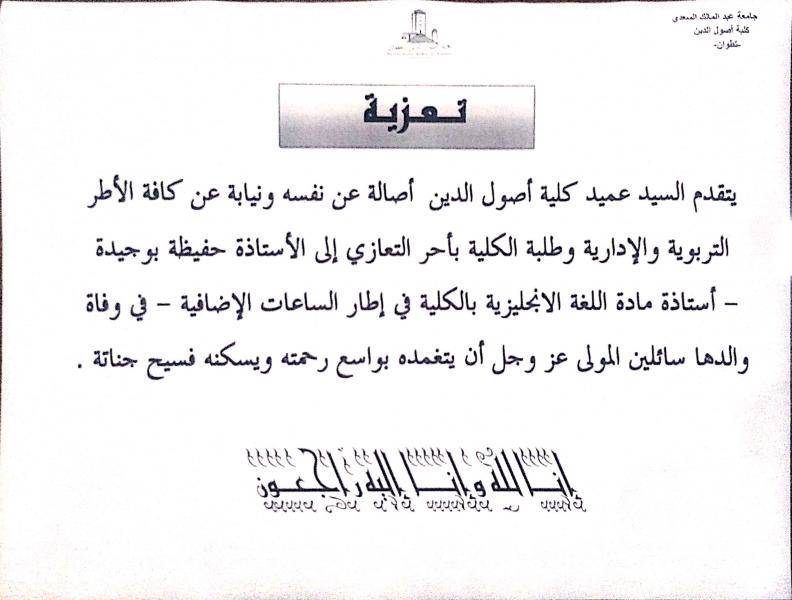 جامعة عبد المالك السعدي
كلية أصول الدين
-تطوان-
تعزية
يتقدم السيد عميد كلية أصول الدين أصالة عن نفسه ونيابة عن كافة الأطر
التربوية والإدارية وطلبة الكلية بأحر التعازي إلى الأستاذة حفيظة بوجيدة
– أستاذة مادة اللغة الانجليزية بالكلية في إطار الساعات الإضافية – في وفاة
والدها سائلين المولى عز وجل أن يتغمده بواسع رحمته ويسكنه فسيح جناتة .
إنا لله وإنا إليه راجعون